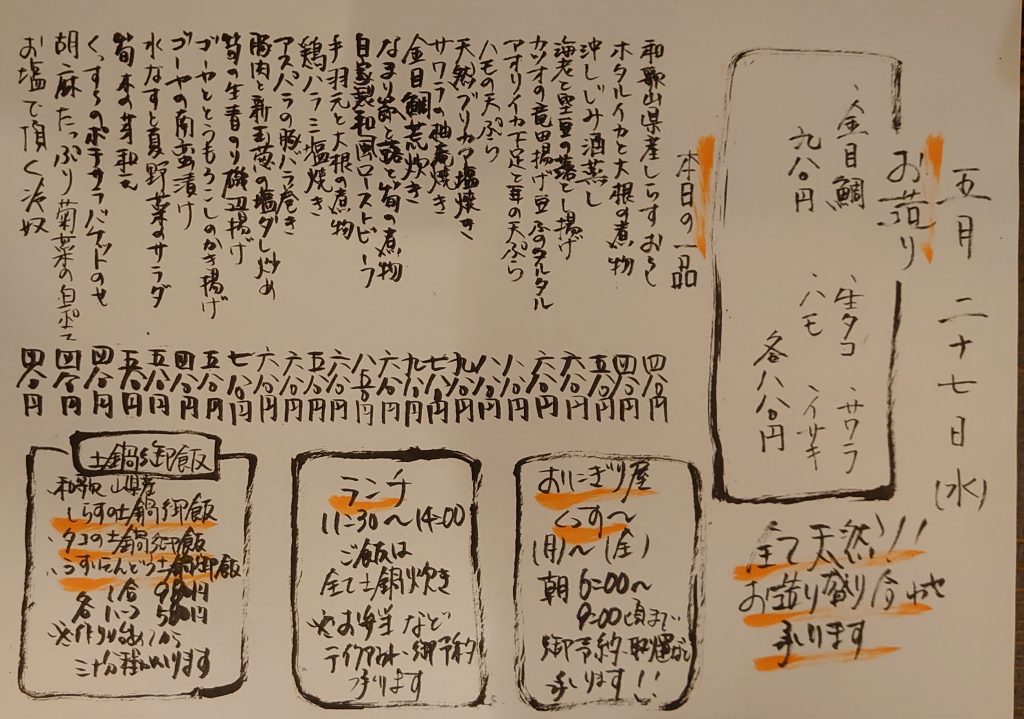 五月二十七日(水)
お造り
、金目鯛
九八〇円
、生タコ 、サワラ
、ハモ 、イサキ
各八八〇円
全て天然!!
お造り盛り合わせ
承ります
本日の一品
和歌山県産しらすおろし 四八〇円
ホタルイカと大根の煮物 四八〇円
沖しじみ酒蒸し 五八〇円
海老と空豆の落とし揚げ 六八〇円
カツオの竜田揚げ豆ふのタルタル 六八〇円
アオリイカ下足と茸の天ぷら 八八〇円
ハモの天ぷら 八八〇円
天然ブリカマ塩焼き 九八〇円
サワラの柚庵焼き 七八〇円
金目鯛荒炊き 九八〇円
なまり節と蕗と筍の煮物 六八〇円
自家製和風ローストビーフ 八五〇円
手羽元と大根の煮物 六八〇円
鶏ハラミ塩焼き 五八〇円
アスパラの豚バラ巻き 六八〇円
豚肉と新玉葱の塩ダレ炒め 六八〇円
筍の生青のり磯辺揚げ 七八〇円
ゴーヤととうもろこしのかき揚げ 五八〇円
ゴーヤの南蛮漬け 四八〇円
水なすと夏野菜のサラダ 五八〇円
筍木の芽和え 五八〇円
くっするのポテサラバゲットのせ 四八〇円
胡麻たっぷり菊菜の白和え 四八〇円
お塩で頂く冷奴 四八〇円
土鍋御飯
、和歌山県産
しらすの土鍋御飯
、タコの土鍋御飯
、うすいえんどう土鍋御飯
1合 980円
各 1/2 580円
※作り始めてから
三十分程かかります
ランチ
11:30〜14:00
ご飯は
全て土鍋炊き
※お弁当など
テイクアウト・御予約
承ります
おにぎり屋
くっす〜
(月)〜(金)
朝 6:00〜
9:00頃まで
御予約・取置など
承ります!!